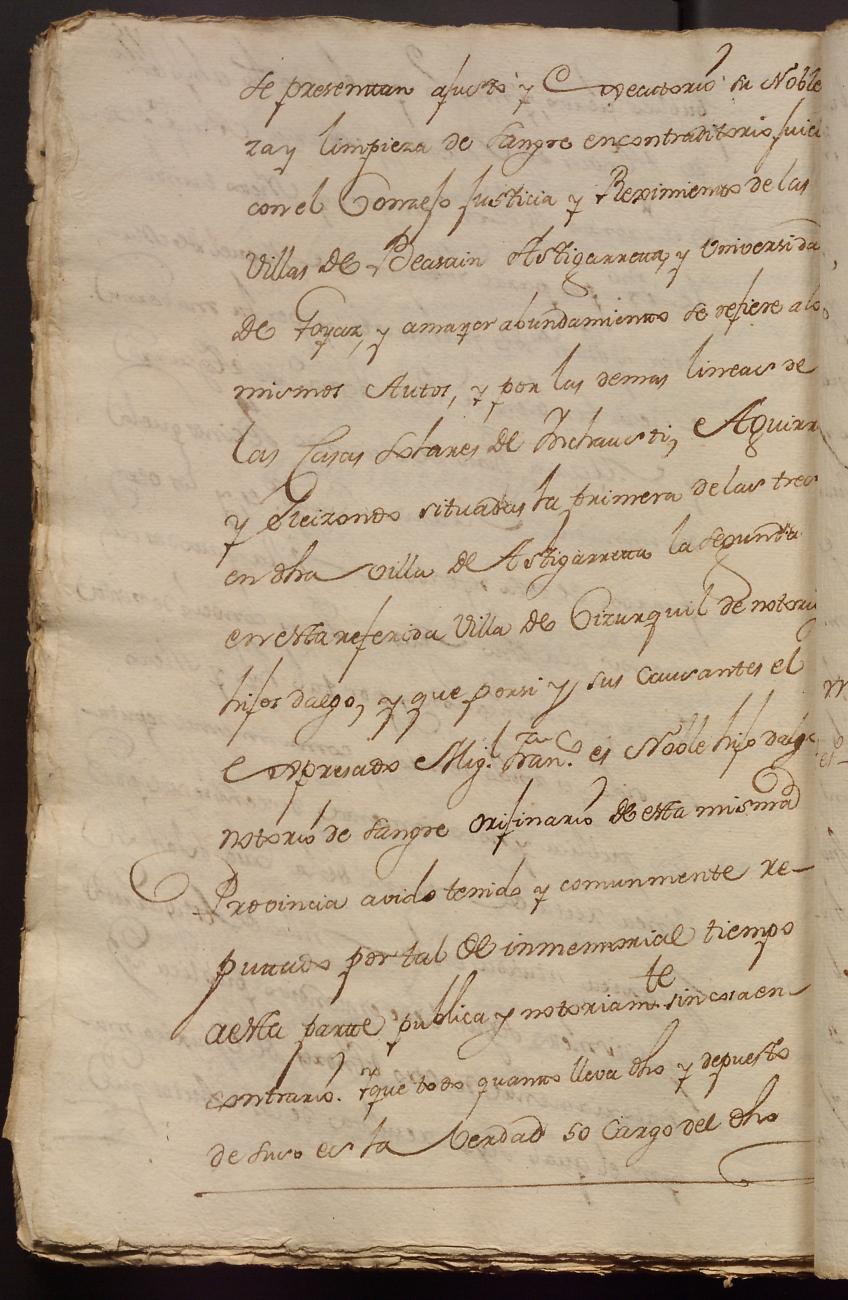 se presentan ajusto y Executorio su Noble
za y limpieza de Sangre en contraditorio Juici
con el Conzejo Justicia y Reximiento de las
Villas de Beasain Astigarreta, y Universida
de Goyaz, y amayor abundamiento se refiere a lo
mismos Autos, y por las demas lineas de
las Casas Solares de Inchausti, Aguirr
y Eleizondo situadas la primera de las tres
en dha villa de Astigarreta la Segunda
en esta referida Villa de Cizurquil de notori
hijos dalgo, y que por si y sus Causantes el
expresado Migl. Franco. es Noble hijo dalg
notorio de Sangre Orijinario de esta misma
Provincia avido tenido y comunmente re-
putado por tal de inmemorial tiempo
a esta parte publica y notoriamte. sin cosa en
contrario. Yque todo quanto lleva dho y depuesto
de suso es la Verdad so Cargo del dho